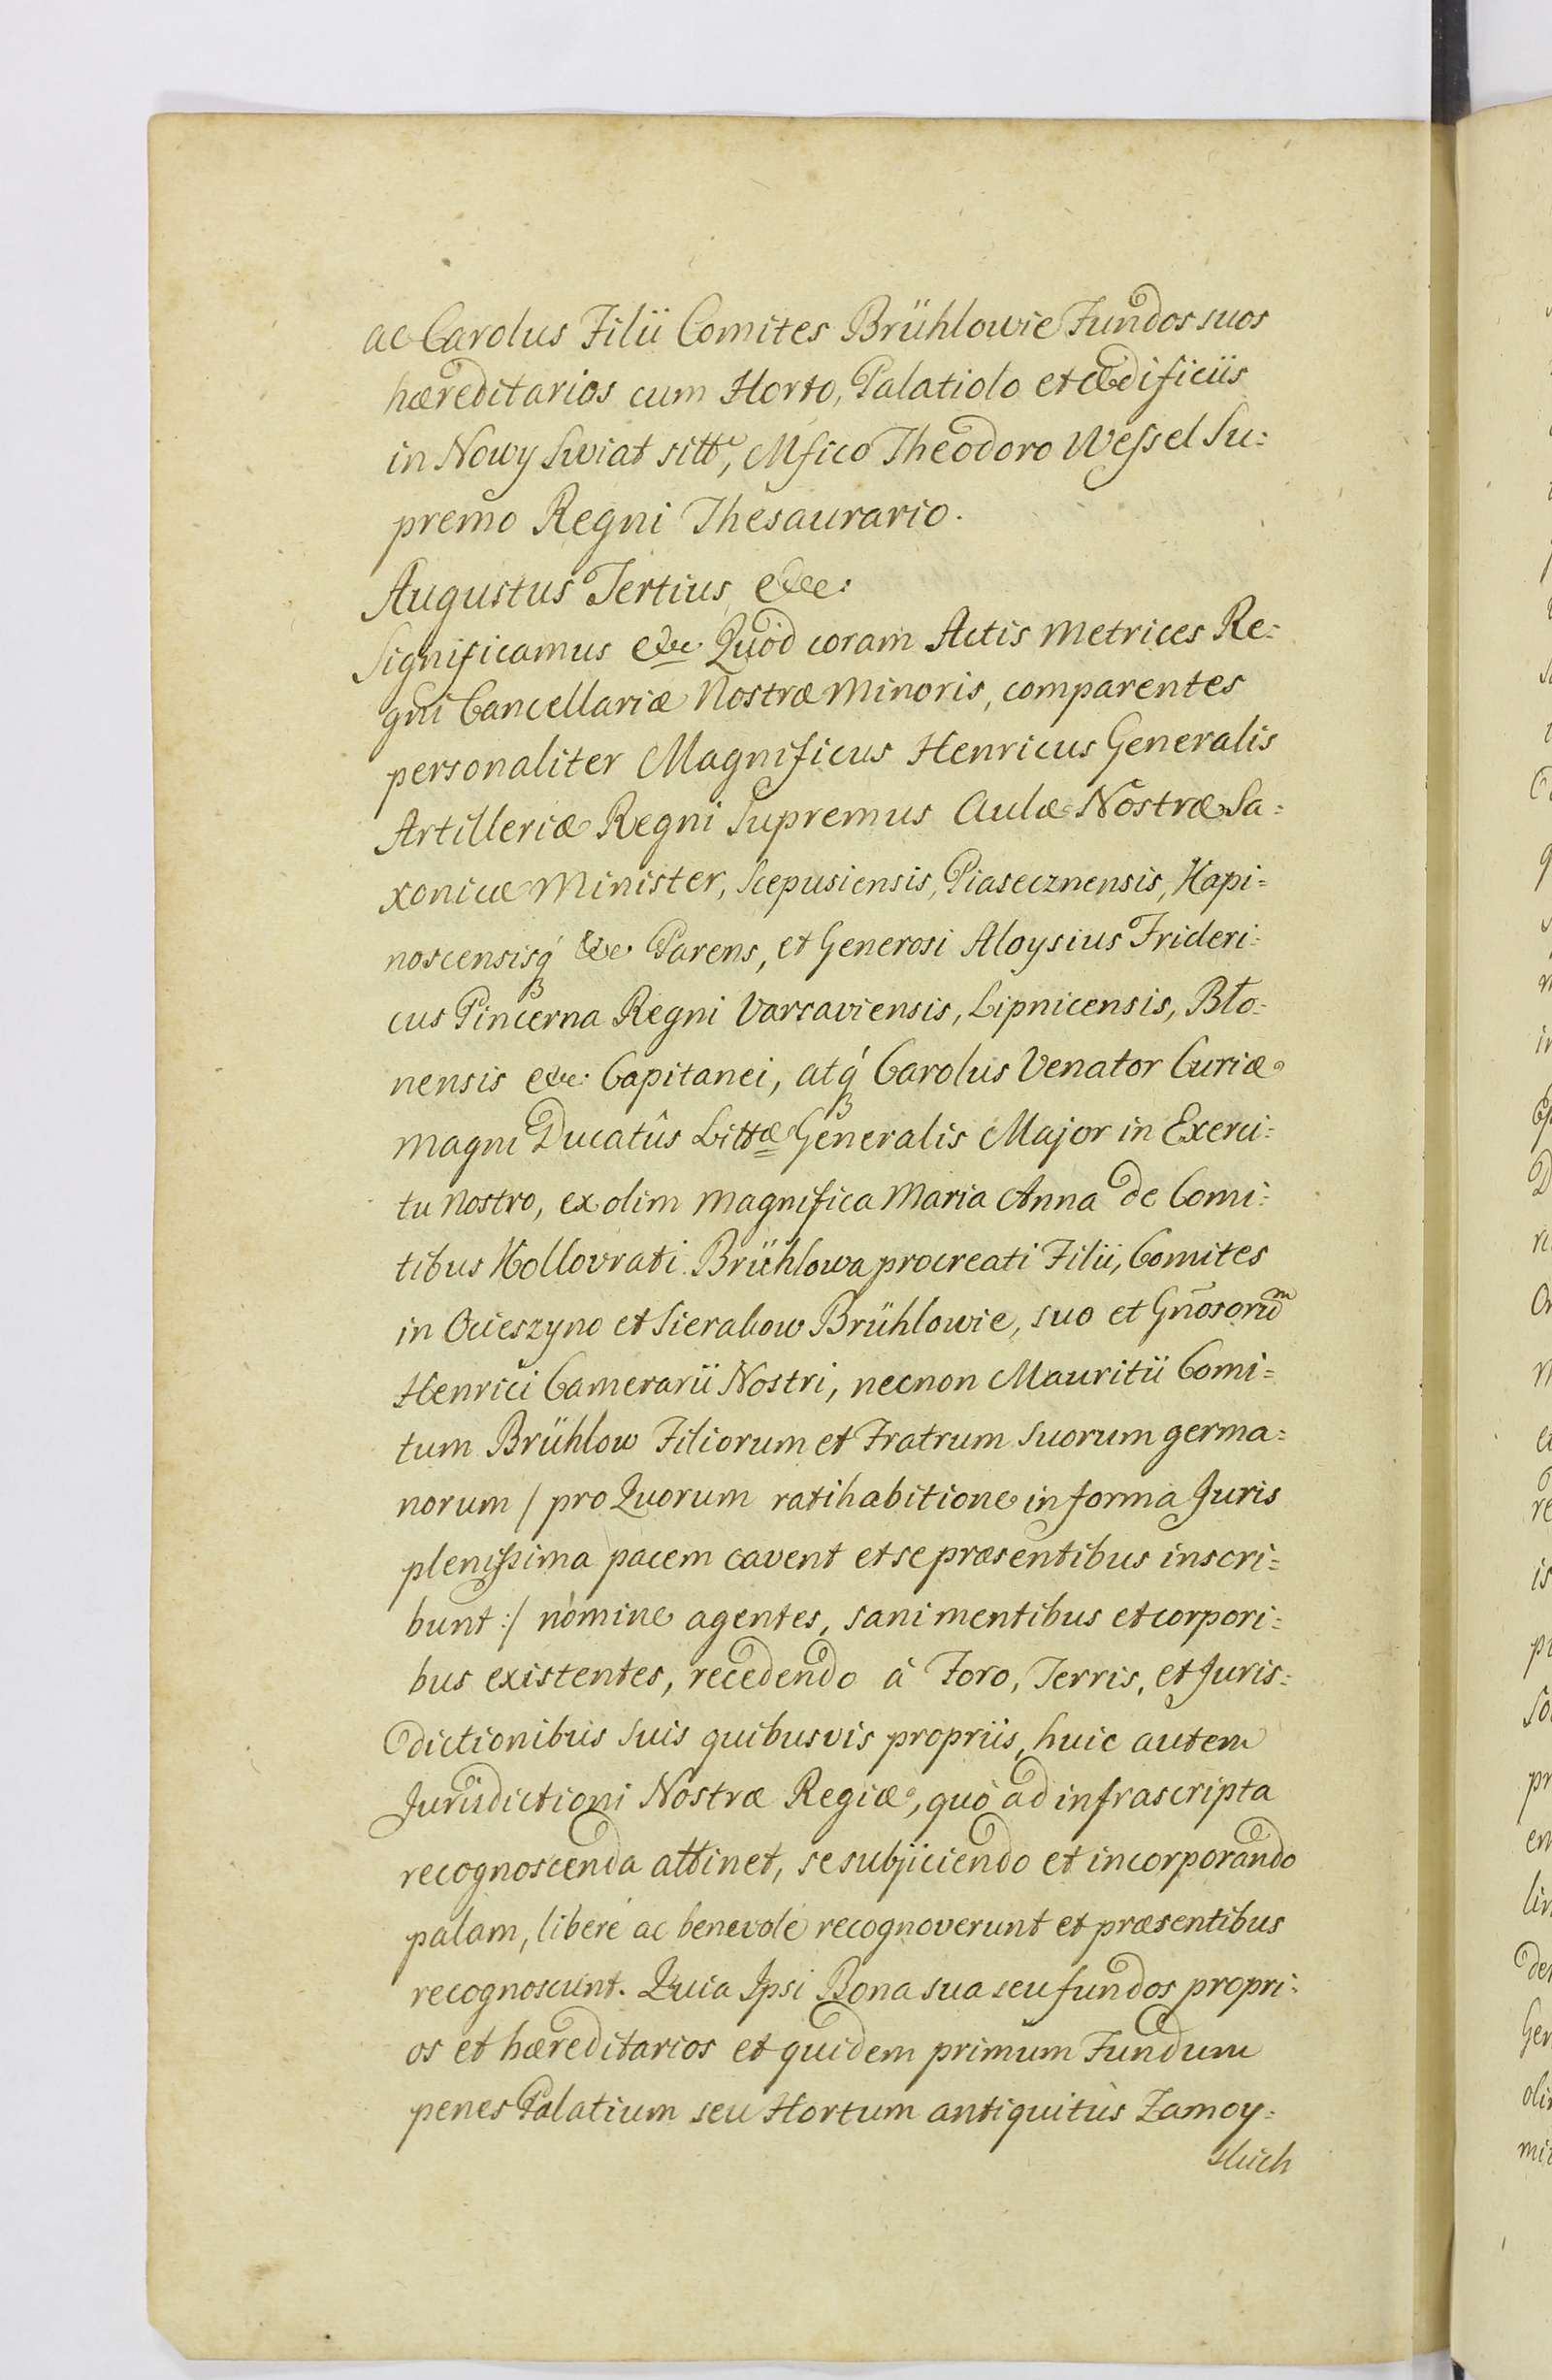 ac Carolus Filii Comites Brühlowie Fundos suos
hæreditarios cum Horto, Palatiolo et ædificiis
in Nowy Swiat sitt, Mfico Theodoro Wessel Su:
premo Regni Thesaurario.
Augustus Tertius &c:
Significamus &c. Quòd coram Actis Metrices Re:
gni Cancellariæ Nostræ Minoris, comparentes
personaliter Magnificus Henricus Generalis
Artilleriæ Regni Supremus Aulæ Nostræ Sa:
xonicæ Minister, Scepusiensis, Piasecznensis, Kapi=
noscensisq́ &c Parens, et Generosi Aloysius Frideri:
cus Pincerna Regni Varsaviensis, Lipnicensis, Blo:
nensis &c: Capitanei, atq́ Carolus Venator Curiæ
Magni Ducatûs Littæ Generalis Major in Exerci:
tu Nostro, ex olim Magnifica Maria Anna de Comi:
tibus Kollovrati Brühlowa procreati Filii, Comites
in Ocieszyno et Sierakow Brühlowie, suo et Gnosorum
Henrici Camerarii Nostri, necnon Mauritii Comi=
tum Brühlow Filiorum et Fratrum Suorum germa=
norum / pro Quorum ratihabitione in forma Juris
plenissima pacem cavent et se præsentibus inscri=
bunt :/ nomine agentes, sani mentibus et corpori:
bus existentes, recedendo à Foro, Terris, et Juris:
dictionibus Suis quibusvis propriis, huic autem
Jurisdictioni Nostræ Regiæ, quò ad infrascripta
recognoscenda attinet, se subjiciendo et incorporando
palam, liberè ac benevolè recognoverunt et præsentibus
recognoscunt. Quia Ipsi Bona sua seu fundos propri:
os et hæreditarios et quidem primum Fundum
penes Palatium seu Hortum antiquitùs Zamoy:
skich